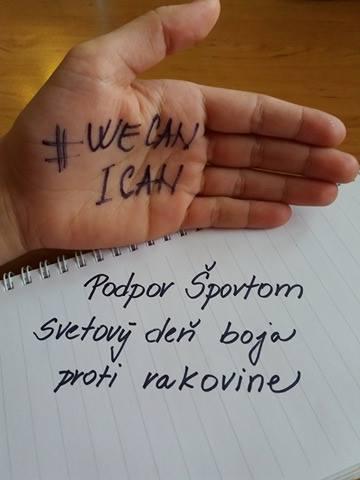 #WECAN
ICAN
Podpor Športom
Svetový deň boja
proti rakovine